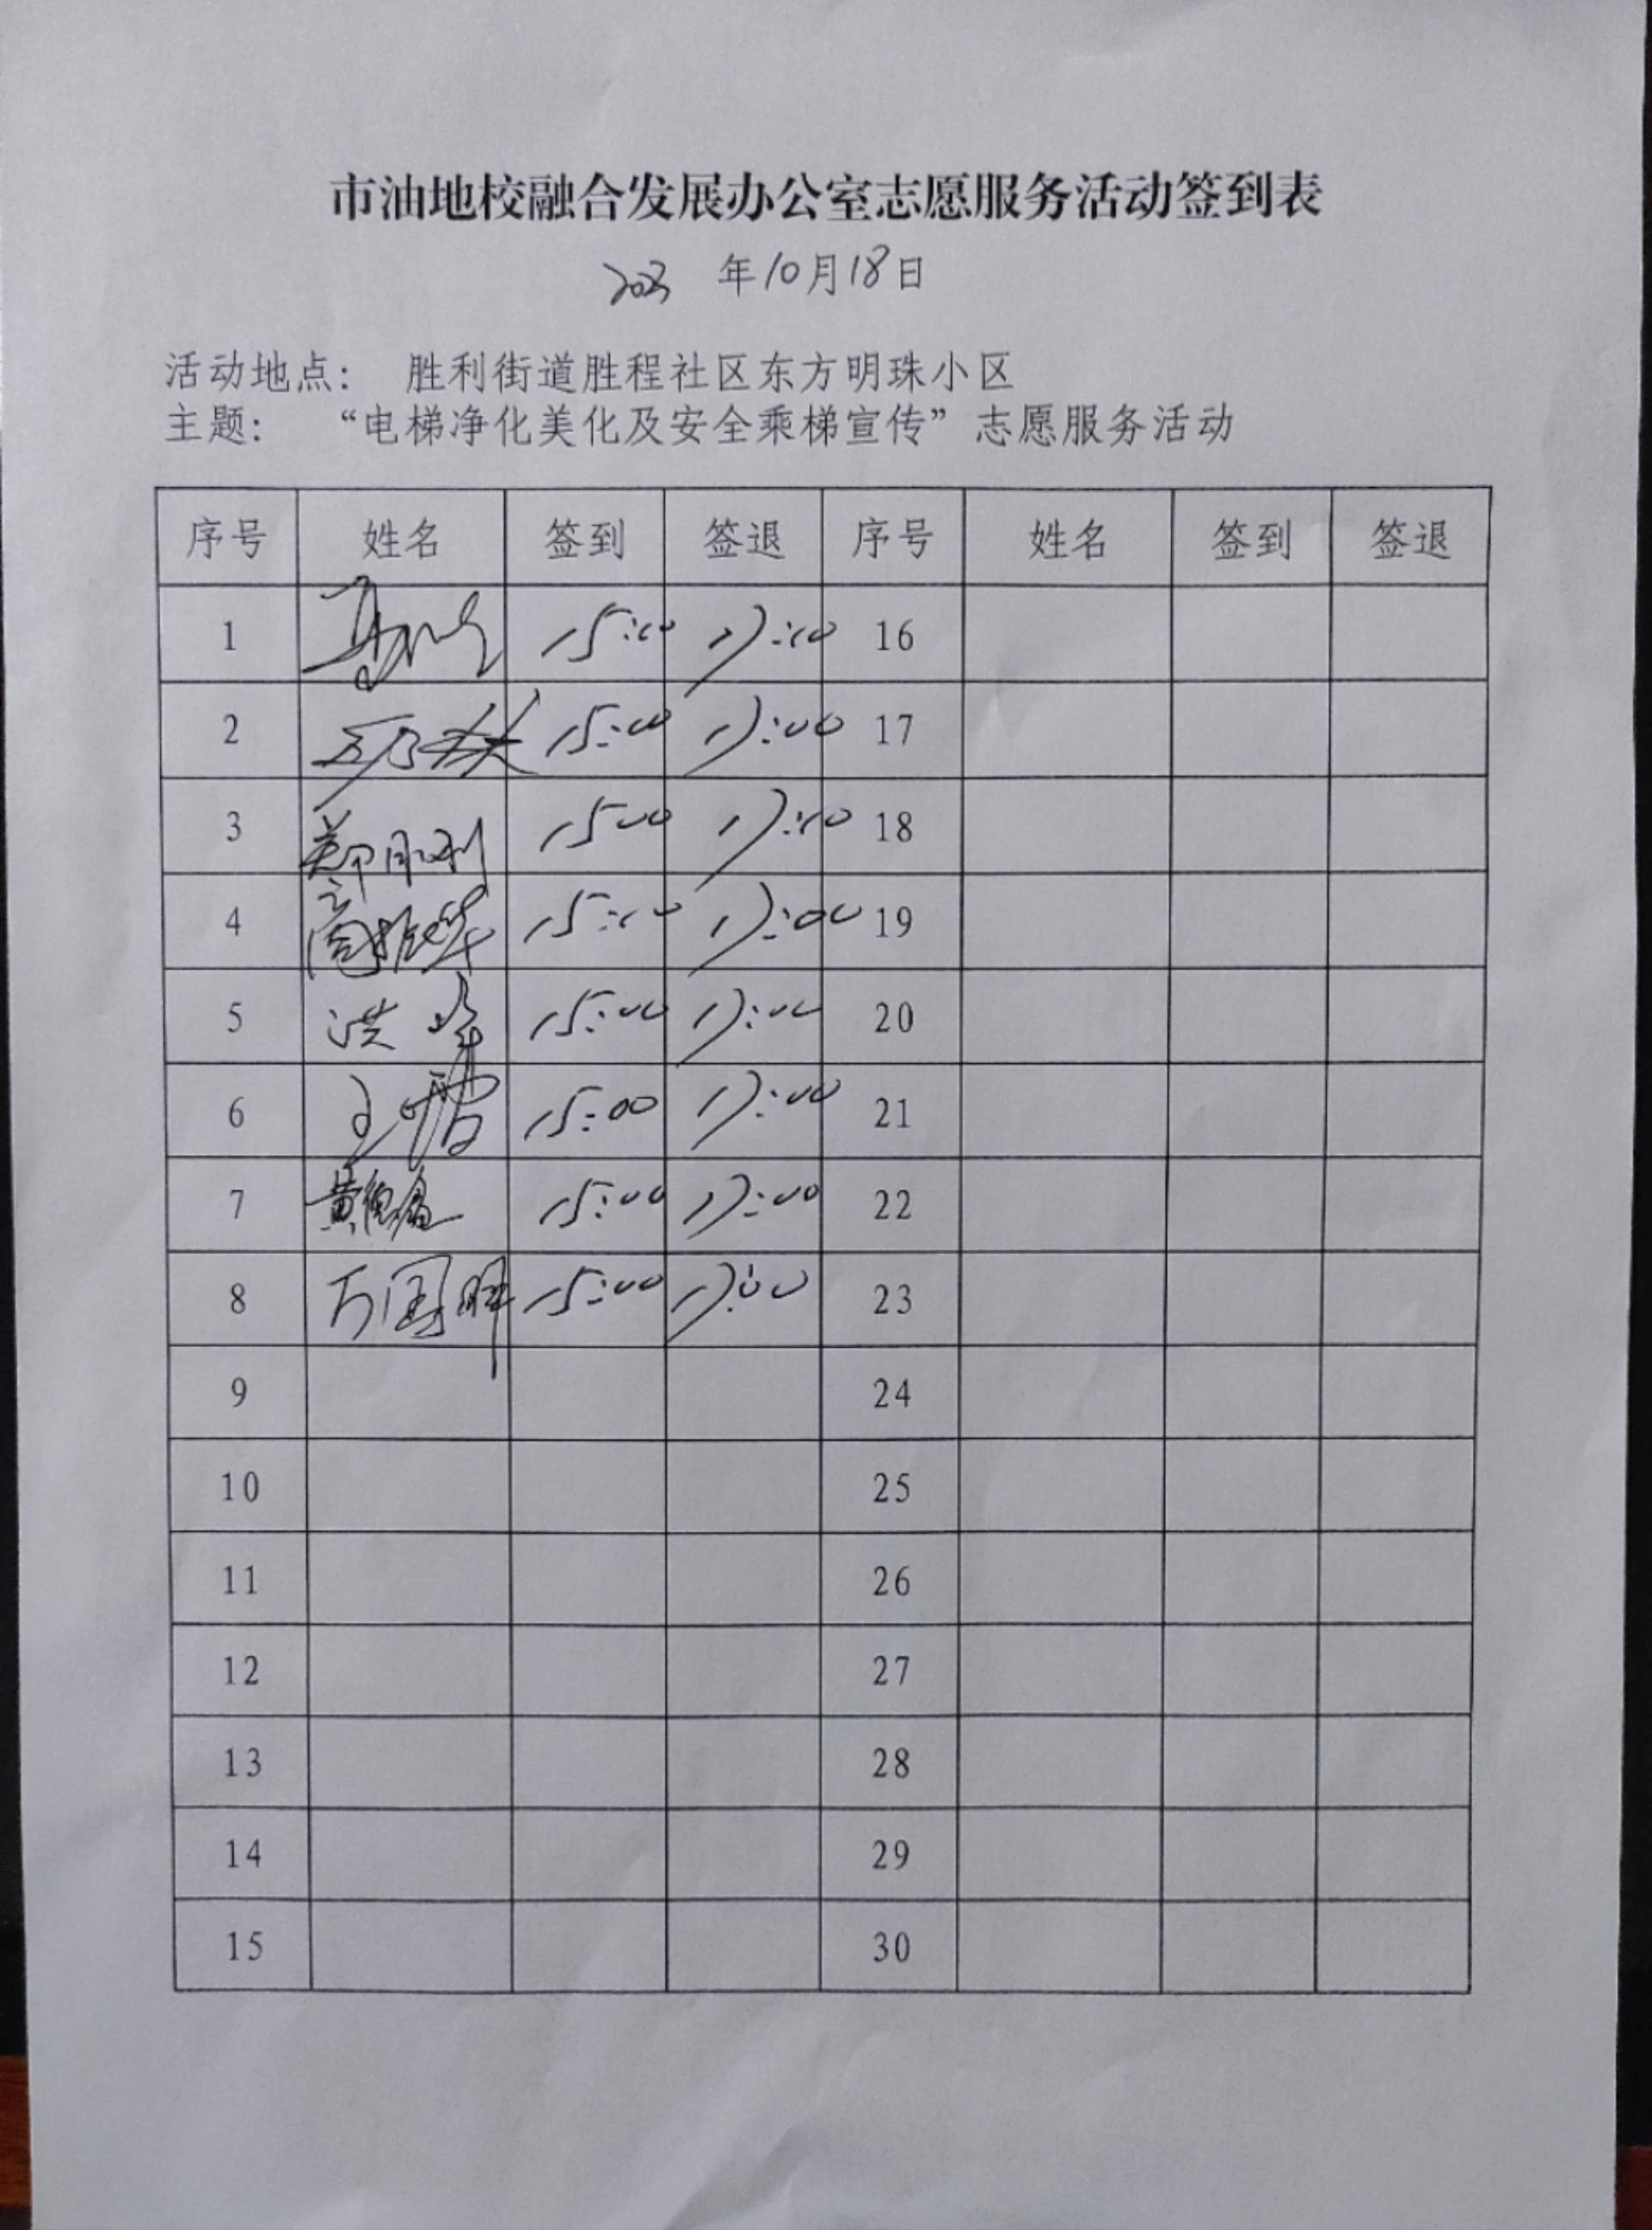 市油地校融合发展办公室志愿服务活动签到表
2023 年10月18日
活动地点： 胜利街道胜程社区东方明珠小区
主题： “电梯净化美化及安全乘梯宣传”志愿服务活动
序号 姓名 签到 签退 序号 姓名 签到 签退
1 15:00 17:00 16
2 15:00 17:00 17
3 郑月利 15:00 17:00 18
4 15:00 17:00 19
5 洪峰 15:00 17:00 20
6 王雷 15:00 17:00 21
7 黄 15:00 17:00 22
8 万国辉 15:00 17:00 23
9 24
10 25
11 26
12 27
13 28
14 29
15 30